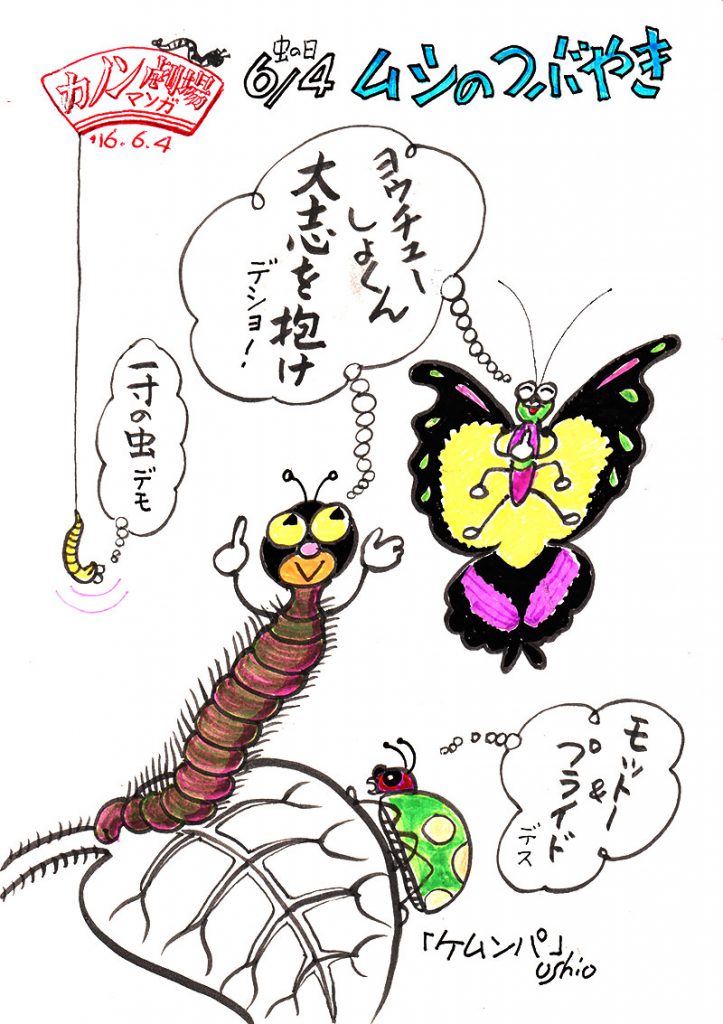 カノン劇場
マンガ
'16.6.4
虫の日
6/4
ムシのつぶやき
ヨウチュー
しょくん
大志を抱け
デショ!
一寸の虫デモ
モットー
&
プライド
デス
「ケムンパ」
ushio